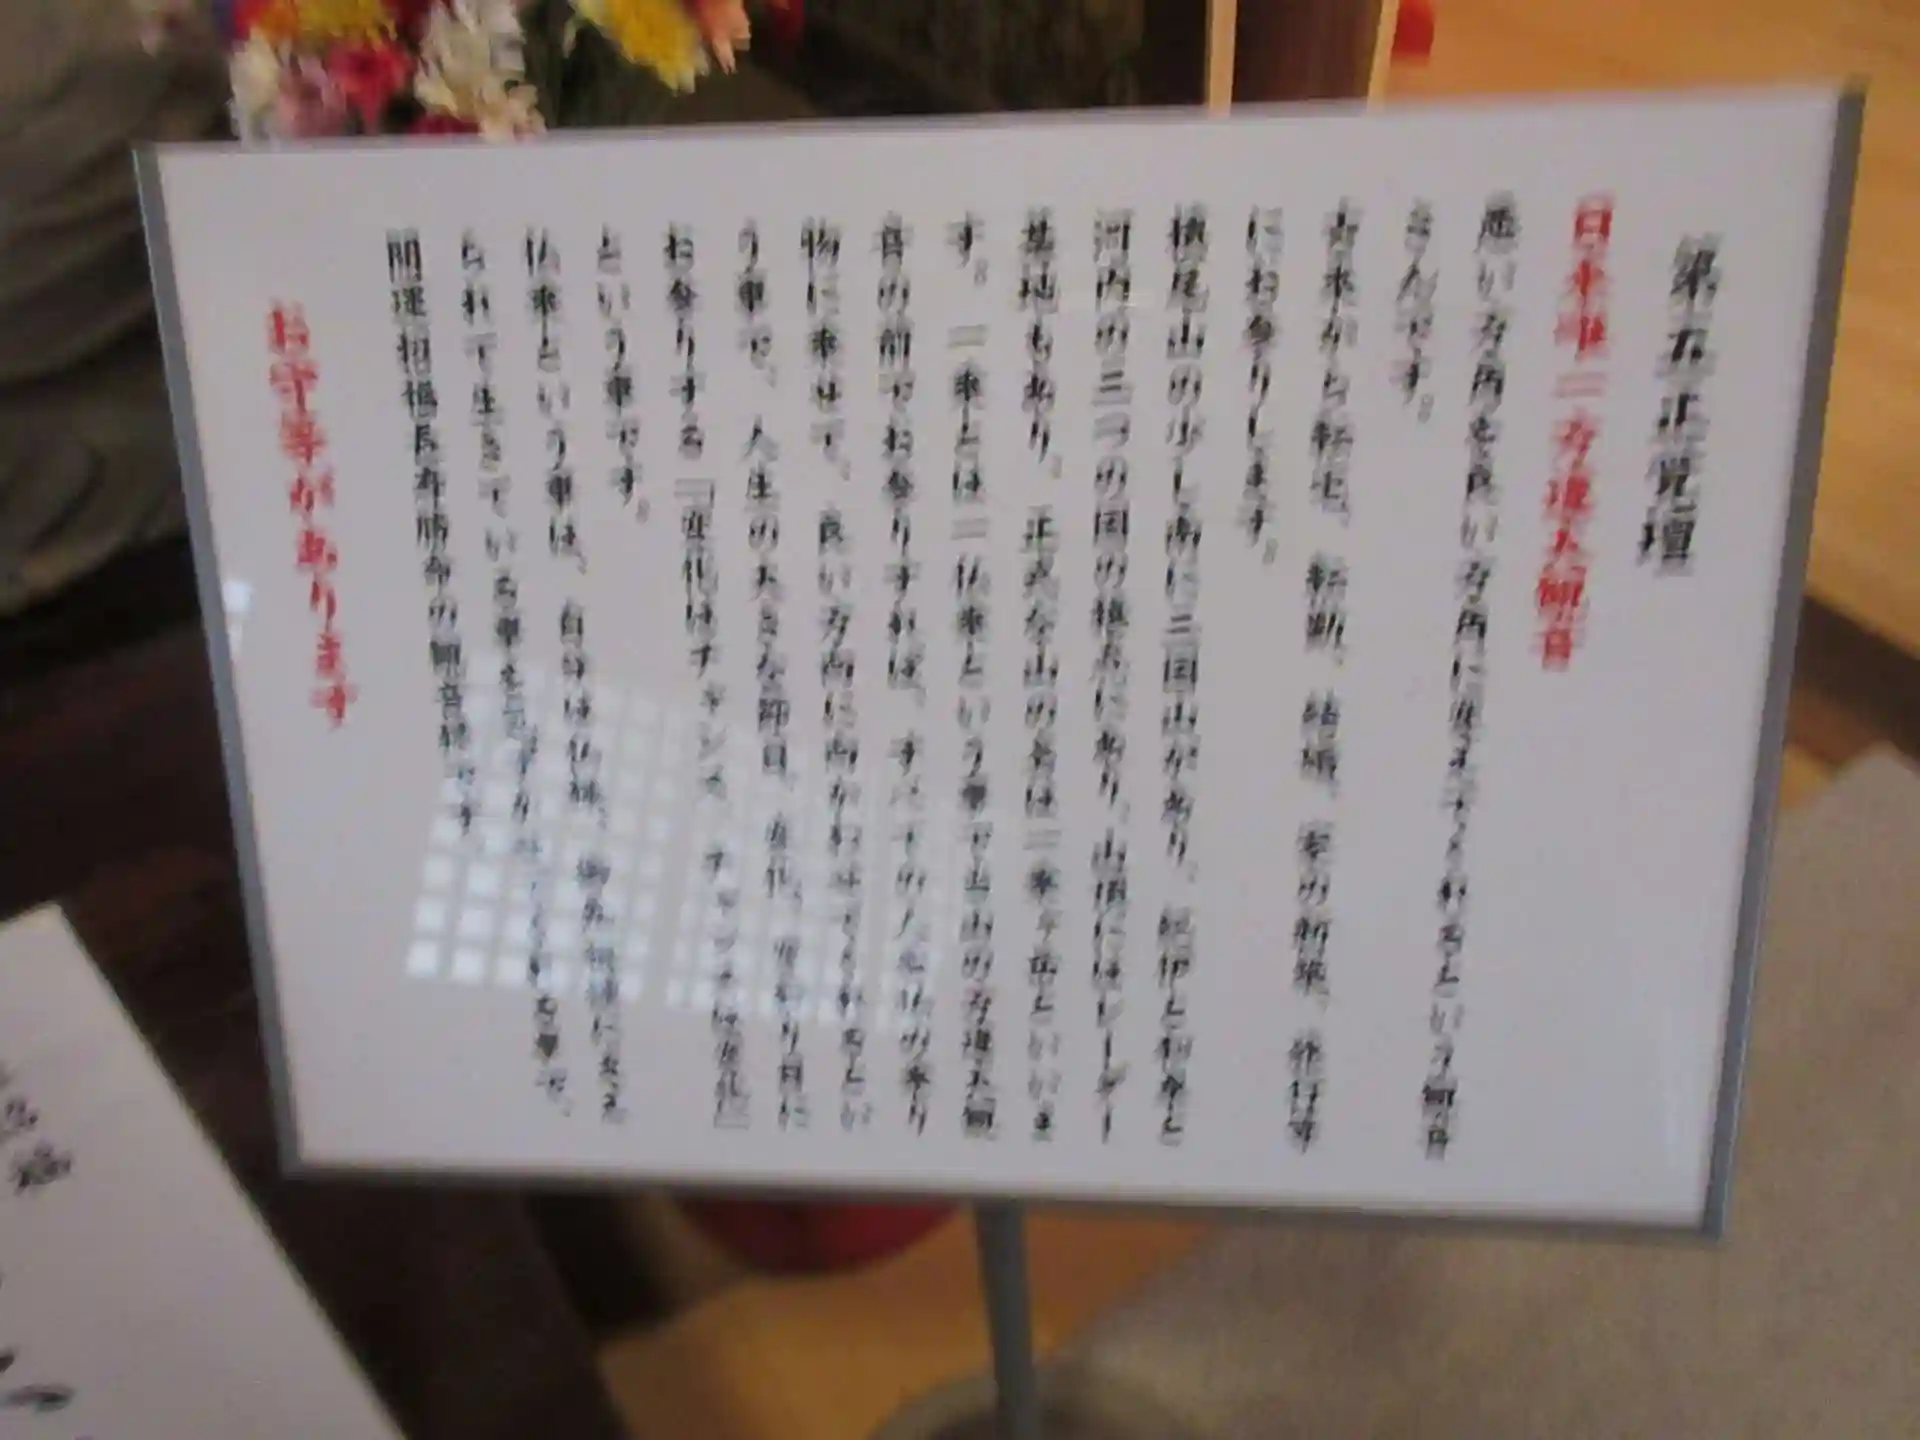 第五正覚壇
日本唯一方違大観音
悪い方角を良い方角に変えてくれるという観音
さんです。
古来から転宅、転勤、結婚、家の新築、旅行等
にお参りします。
槙尾山の少し南に三国山があり、紀伊と和泉と
河内の三つの国の接点にあり、山頂にはレーダー
基地もあり、正式な山の名は二来ヶ岳といいま
す。二来とは二仏来という事で当山の方違大観
音の前でお参りすれば、すべての人を仏の乗り
物に乗せて、良い方向に向かわせてくれるとい
う事で、人生の大きな節目、変化、変わり目に
お参りする「変化はチャンス、チャンスは変化」
という事です。
仏来という事は、自身は仏様、御先祖様に支え
られて生きている事を
開運招福長寿勝命の観音様です。
お守等があります